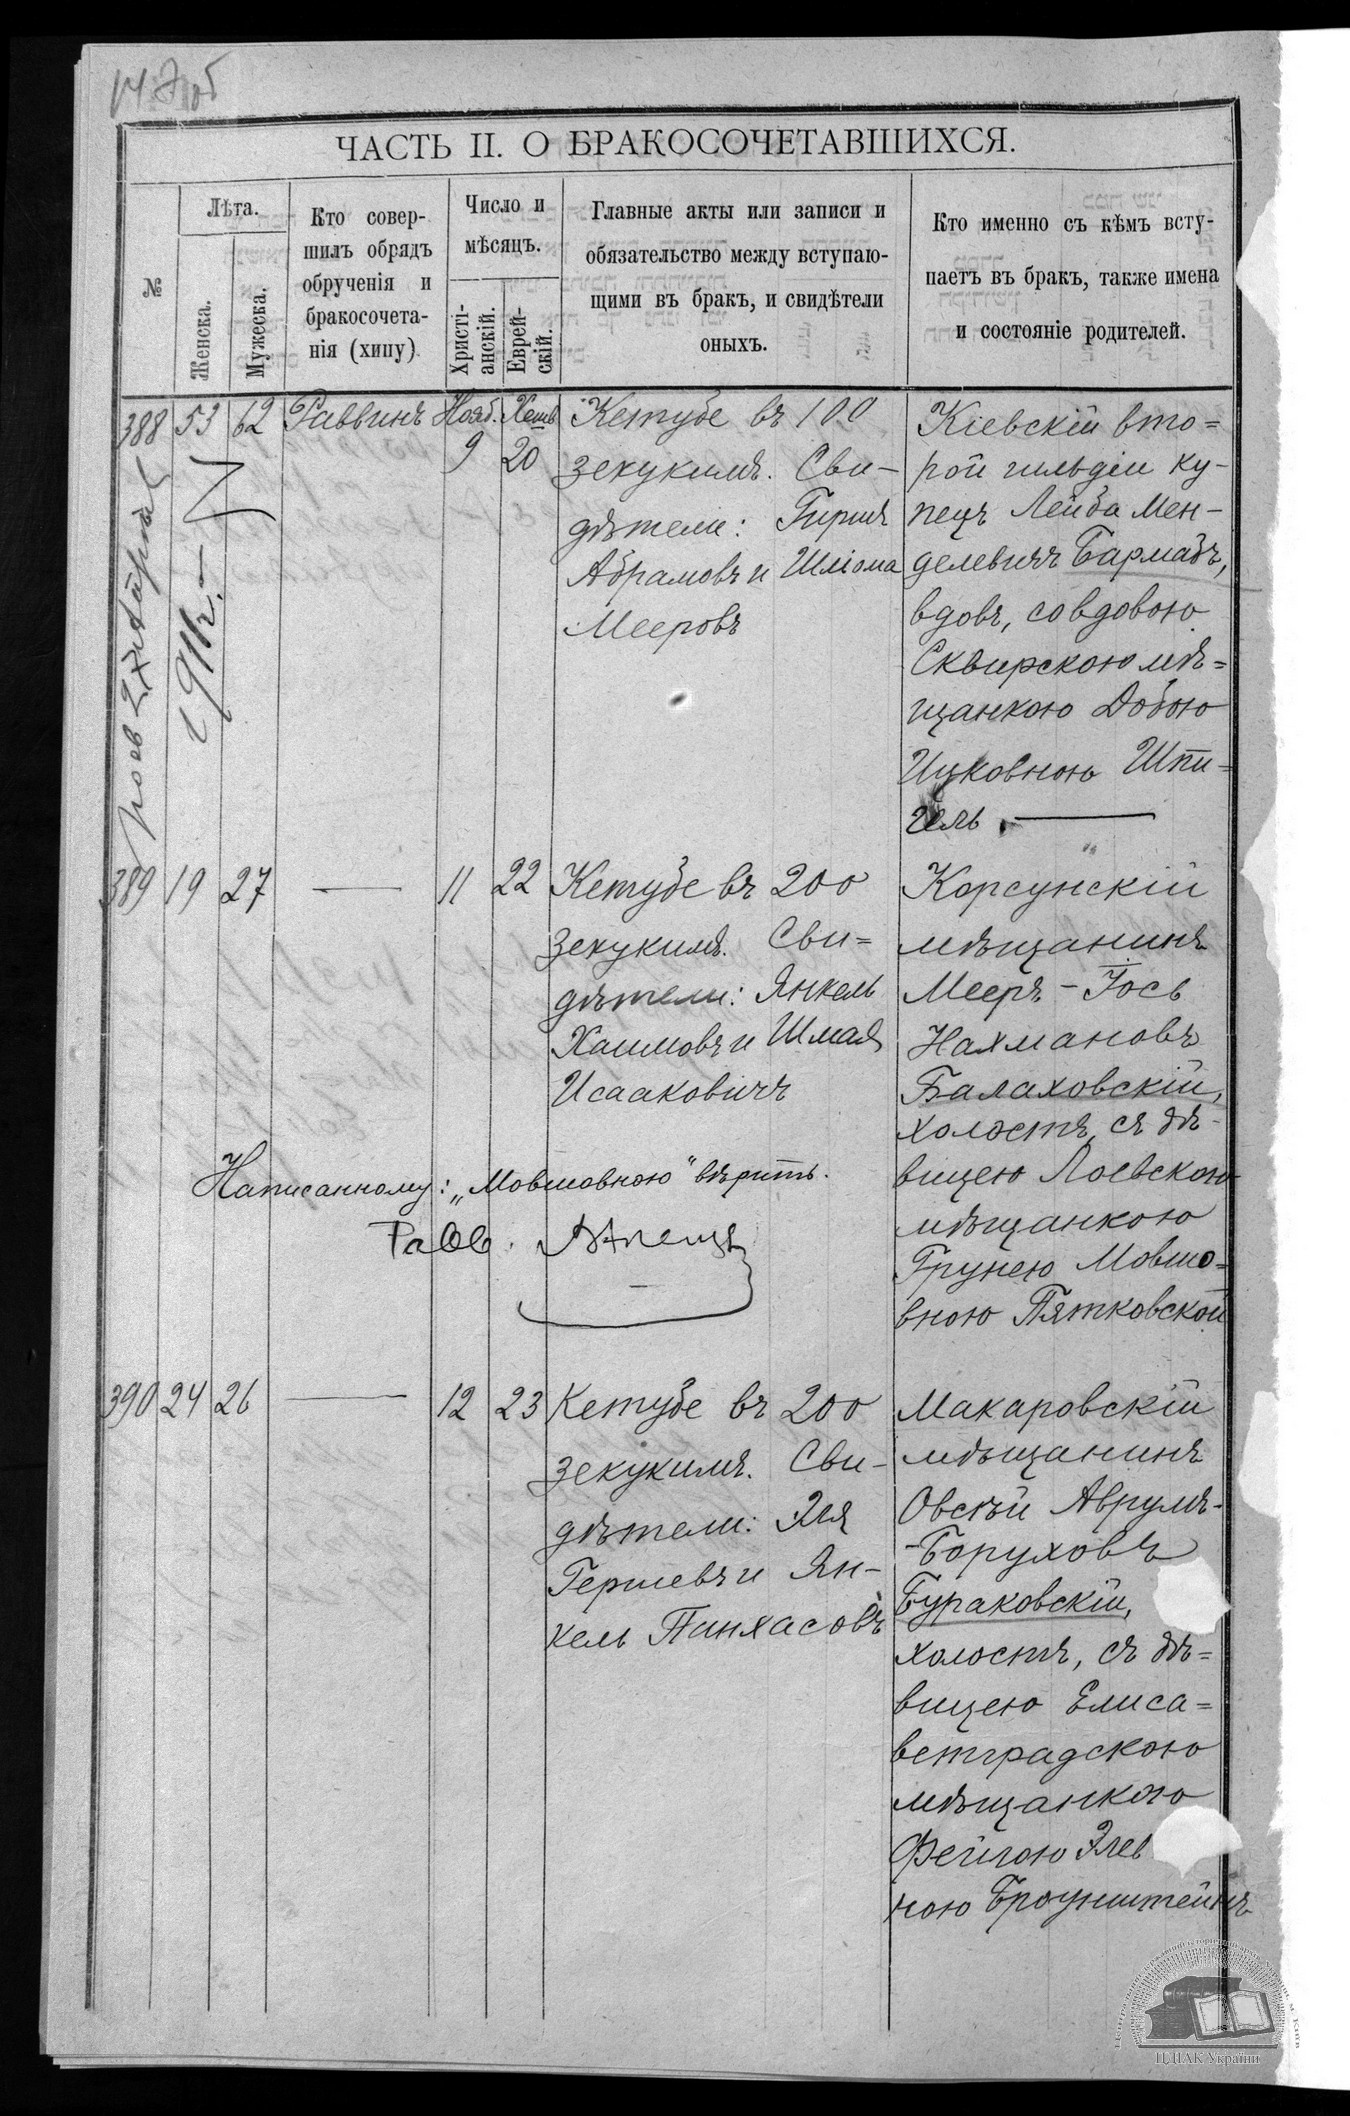 ЧАСТЬ II. О БРАКОСОЧЕТАВШИХСЯ.
№
Лѣта.
Женска.
Мужеска.
Кто совер-
шилъ обрядъ
обрученія и
бракосочета-
нія (хипу)
Число и
мѣсяцъ.
Христі-
анскій.
Еврей-
скій.
Главные акты или записи и
обязательство между вступаю-
щими въ бракъ, и свидѣтели
оныхъ.
Кто именно съ кѣмъ всту-
паетъ въ бракъ, также имена
и состояніе родителей.
388 53 62 Раввинъ Нояб. Хешв
9 20
Кетубе въ 100
зекукимъ. Сви-
дѣтели: Гирша
Абрамовъ и Шліома
Мееровъ
Кіевскій вто=
рой гильдіи ку-
пецъ Лейба Мен-
делевичъ Бармадъ,
вдовъ, со вдовою
Сквирскою мѣ=
щанкою Добою
Ицковною Шпи-
гель
1911 г.
389 19 27 — 11 22
Кетубе въ 200
зекукимъ. Сви=
дѣтели: Янкель
Хаимовъ и Шмая
Исааковичъ
Корсунскій
мѣщанинъ
Мееръ-Іось
Нахмановъ
Балаховскій,
холостъ, съ дѣ-
вицею Лоевскою
мѣщанкою
Грунею Мовшо=
вною Пятковской
Написанному: „Мовшовною" вѣрить.
Равв.
390 24 26 — 12 23
Кетубе въ 200
зекукимъ. Сви-
дѣтели: Эля
Гершевъ и Ян-
кель Пинхасовъ
Макаровскій
мѣщанинъ
Овсѣй Аврумъ-
-Боруховъ
Бураковскій,
холостъ, съ дѣ=
вицею Елиса=
ветградскою
мѣщанкою
Фейгою Элев
ною Броунштейнъ
ЦДІАК України